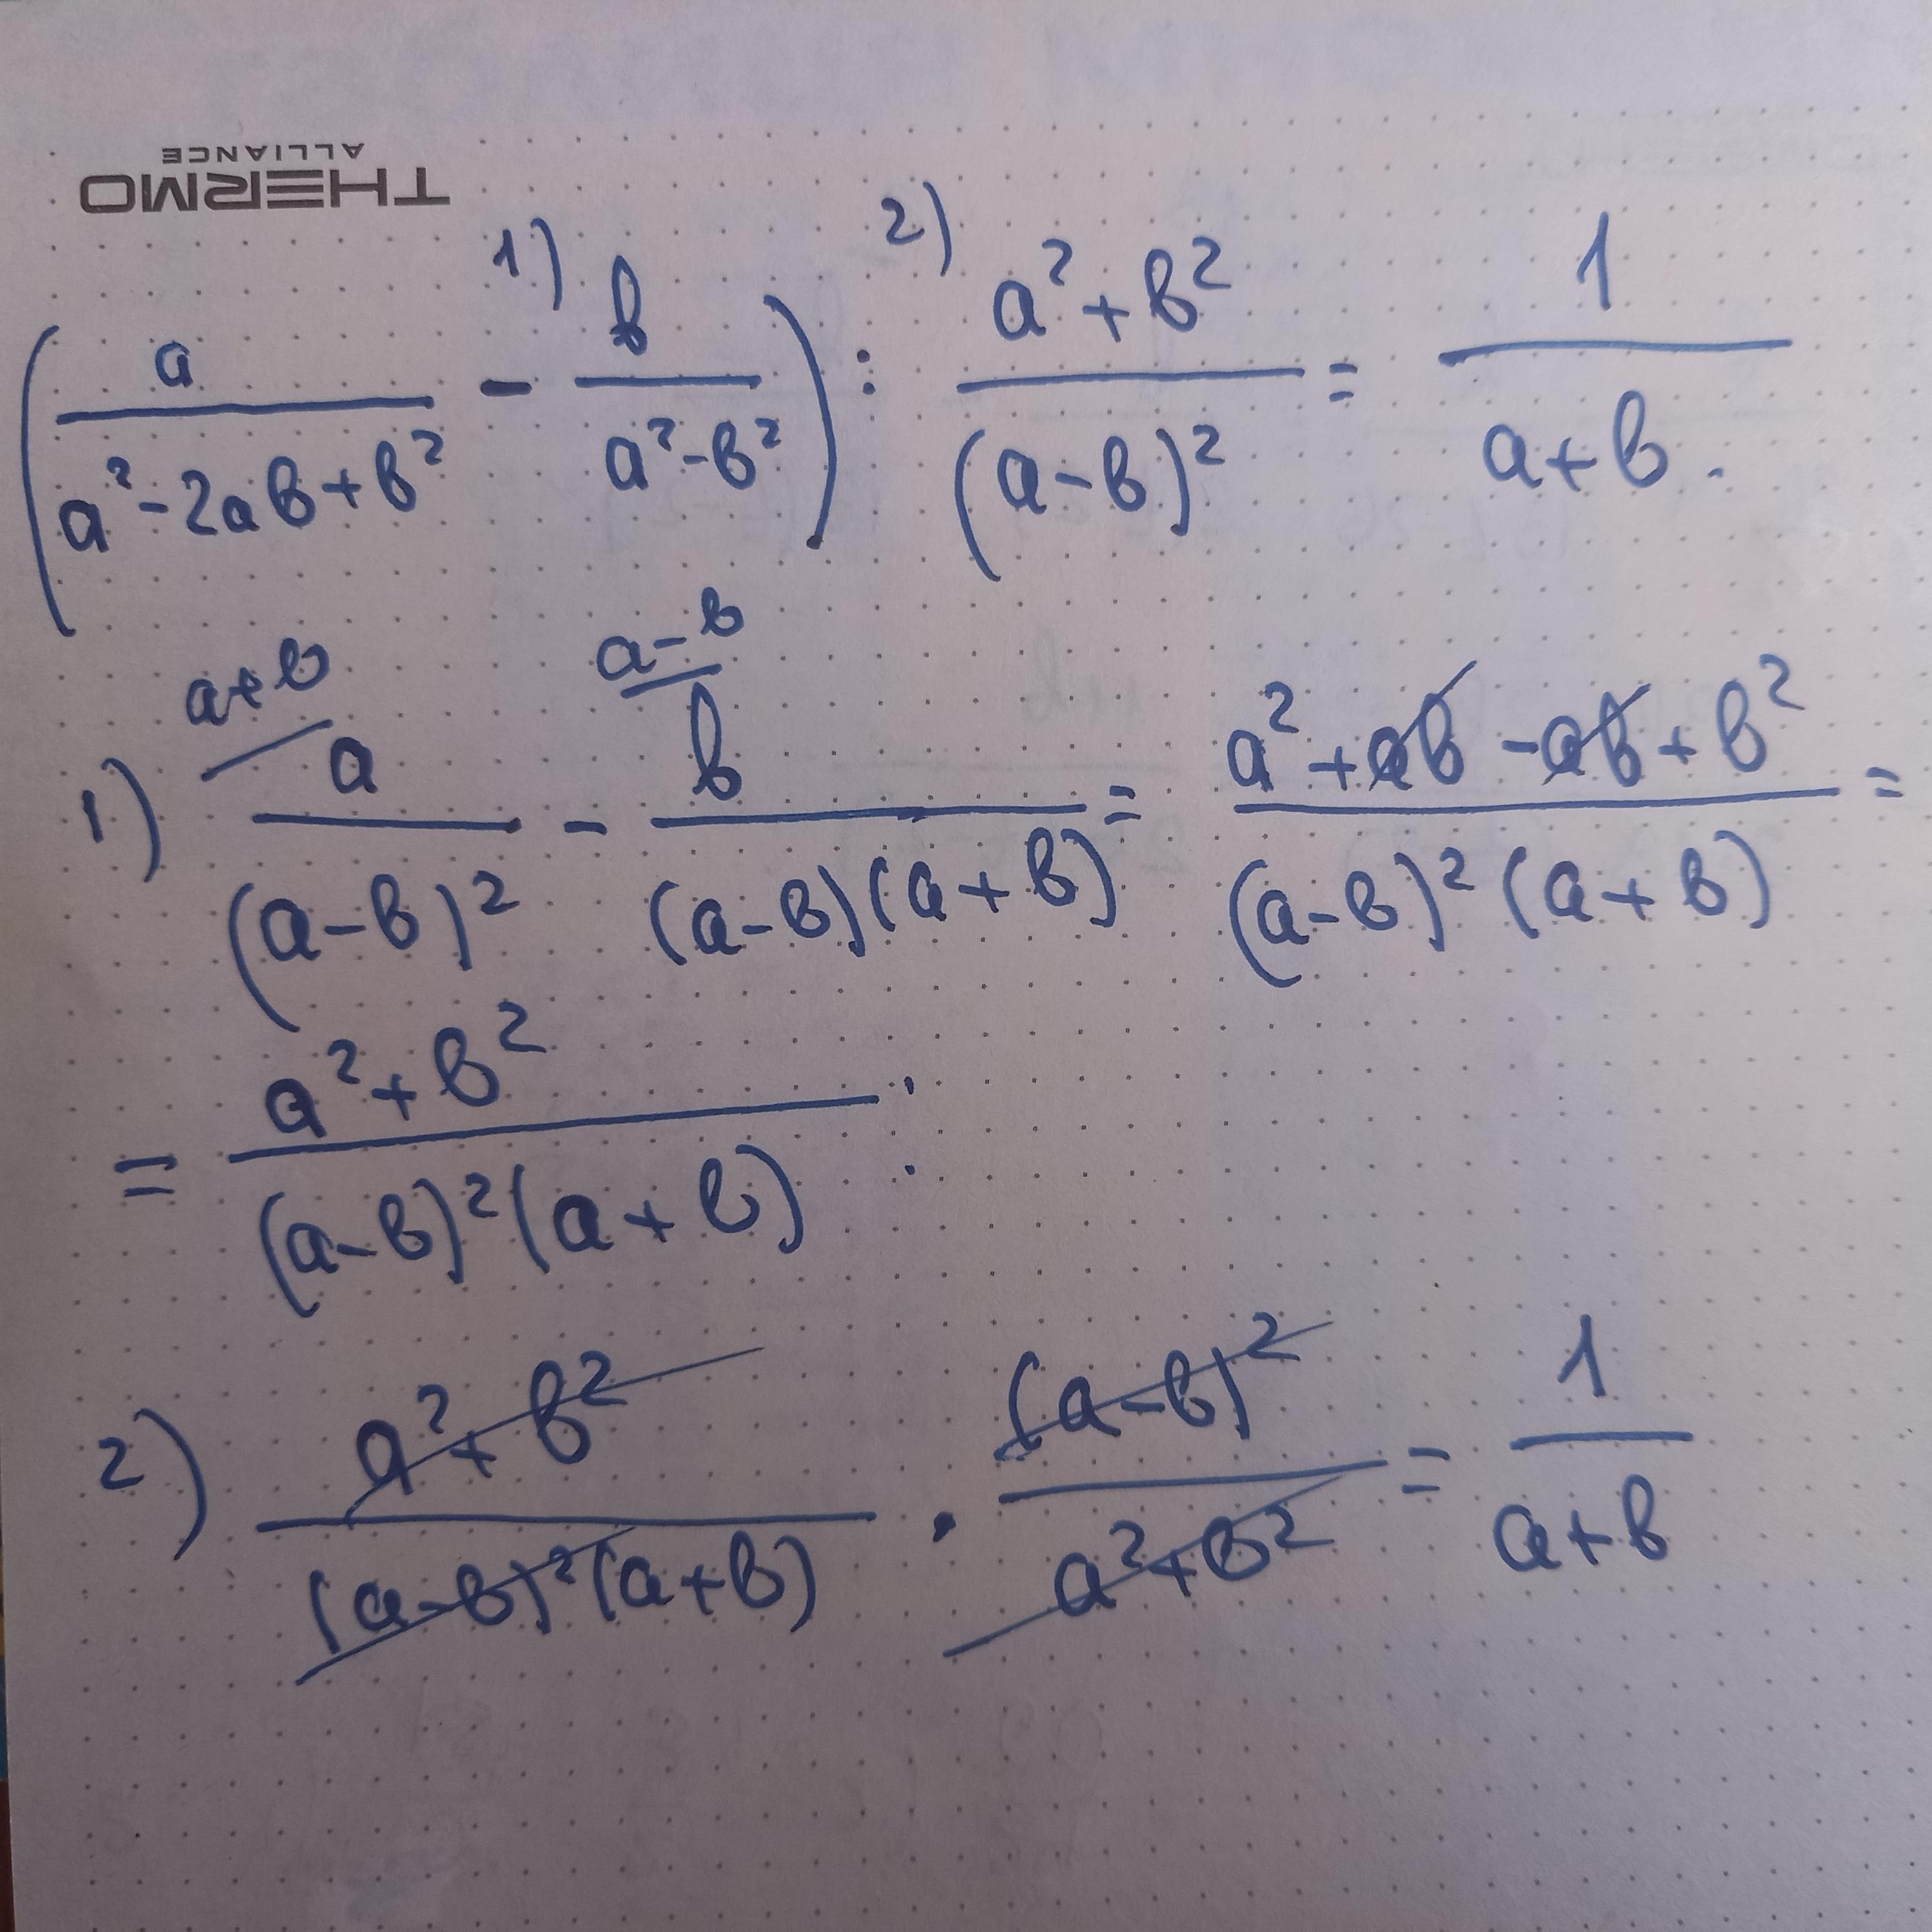 THERMO
ALLIANCE
1) 2)
(a/(a²-2ab+b²) - b/(a²-b²)) : (a²+b²)/(a-b)² = 1/(a+b).
a+b a-b
1) a/(a-b)² - b/((a-b)(a+b)) = (a²+ab-ab+b²)/((a-b)²(a+b)) =
= (a²+b²)/((a-b)²(a+b)) :
2) (a²+b²)/((a-b)²(a+b)) · (a-b)²/(a²+b²) = 1/(a+b)